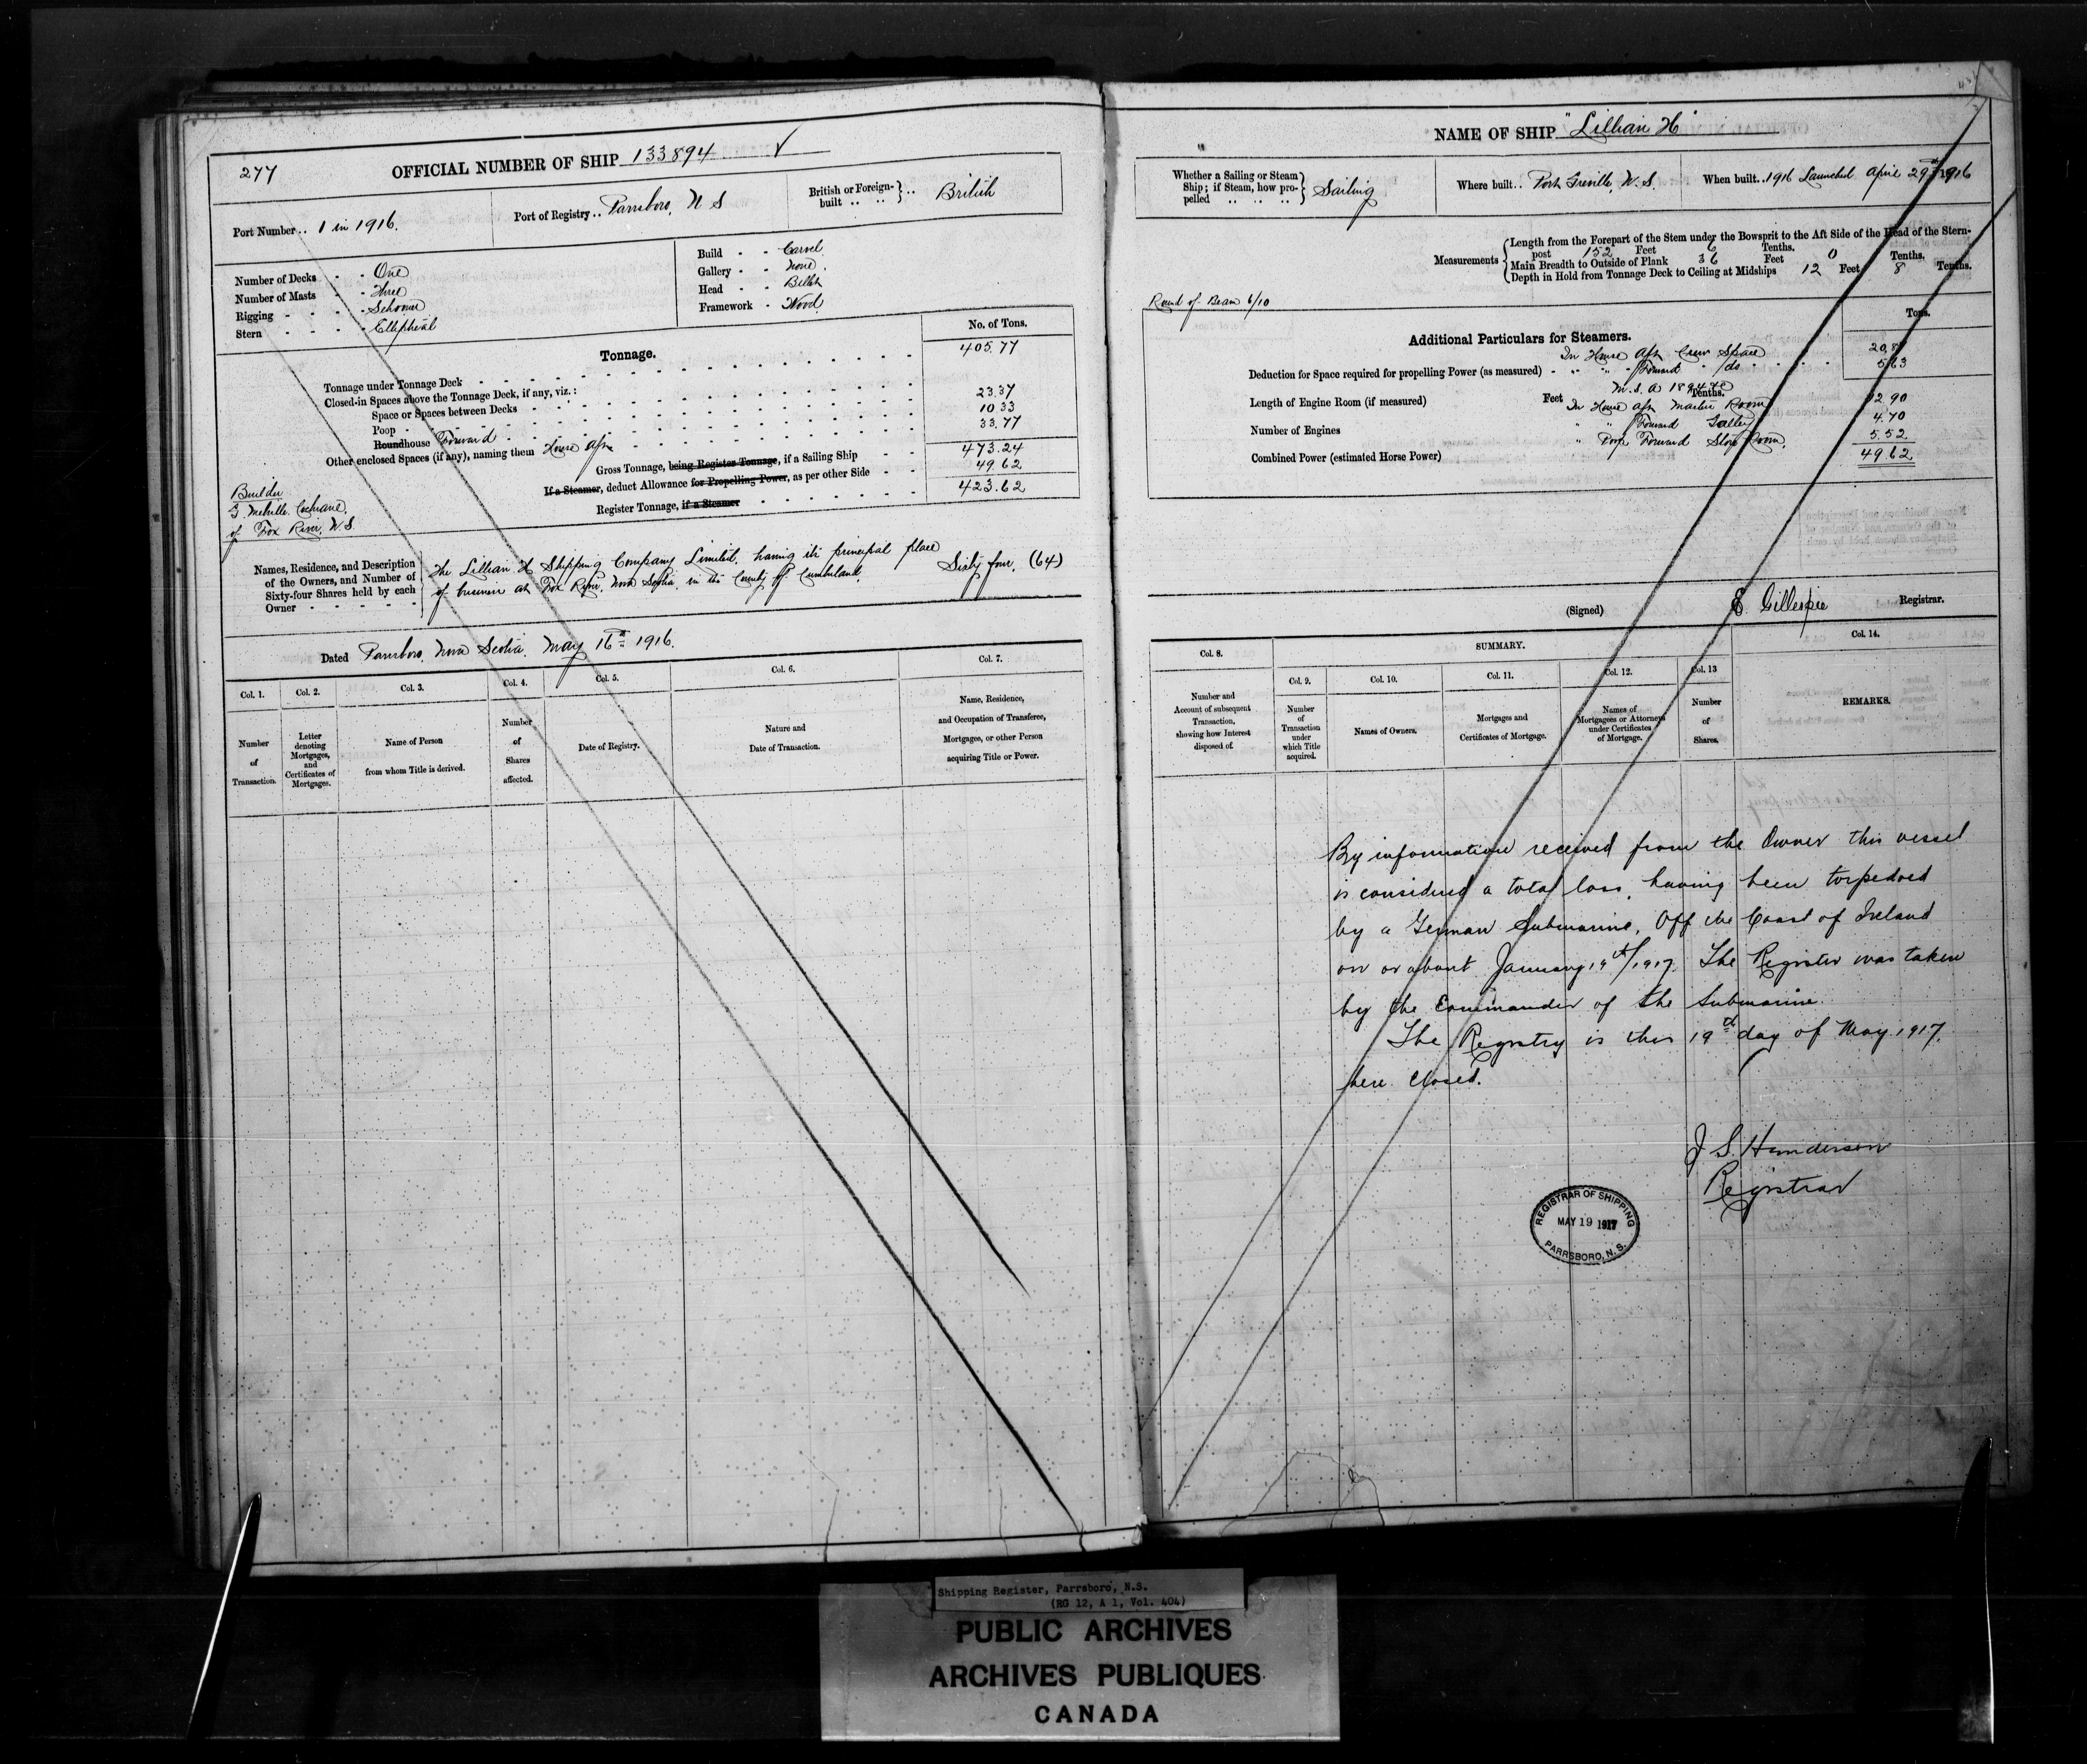 277
OFFICIAL NUMBER OF SHIP 133894 ✓
Port Number .. 1 in 1916.
Port of Registry .. Parrsboro, N S
British or Foreign-built .. .. } .. British
Number of Decks - - One
Number of Masts - - Three
Rigging - - - - Schooner
Stern - - - - Elliptical
Build - - Carvel
Gallery - - None.
Head - - Billet
Framework - Wood.
Tonnage.
No. of Tons.
Tonnage under Tonnage Deck 405.77
Closed-in Spaces above the Tonnage Deck, if any, viz.:
Space or Spaces between Decks
Poop 23.37
Roundhouse Forward 10.33
Other enclosed Spaces (if any), naming them House Aft 33.77
Gross Tonnage, being Register Tonnage, if a Sailing Ship 473.24
If a Steamer, deduct Allowance for Propelling Power, as per other Side 49.62
Register Tonnage, if a Steamer 423.62
Builder
Melville Cochrane,
of Fox River, N.S.
Names, Residence, and Description
of the Owners, and Number of
Sixty-four Shares held by each
Owner
The Lillian H Shipping Company Limited, having its principal place
of business at Fox River, Nova Scotia, in the County of Cumberland,
Sixty four, (64)
Dated Parrsboro, Nova Scotia, May 16th 1916.
Col. 1.
Number
of
Transaction.
Col. 2.
Letter
denoting
Mortgages,
and
Certificates of
Mortgages.
Col. 3.
Name of Person
from whom Title is derived.
Col. 4.
Number
of
Shares
affected.
Col. 5.
Date of Registry.
Col. 6.
Nature and
Date of Transaction.
Col. 7.
Name, Residence,
and Occupation of Transferee,
Mortgagee, or other Person
acquiring Title or Power.
NAME OF SHIP "Lillian H"
Whether a Sailing or Steam
Ship; if Steam, how pro-
pelled .. .. ..
Sailing
Where built .. Port Greville, N.S.
When built .. 1916 Launched April 29th 1916
Measurements
Length from the Forepart of the Stem under the Bowsprit to the Aft Side of the Head of the Stern-
post 152 Feet 6 Tenths.
Main Breadth to Outside of Plank 36 Feet 0 Tenths.
Depth in Hold from Tonnage Deck to Ceiling at Midships 12 Feet 8 Tenths.
Round of Beam 6/10
Additional Particulars for Steamers.
Tons.
In House Aft Crew Space 20.87
Deduction for Space required for propelling Power (as measured) - " " Forward " do 5.63
M.S.A 1894
Length of Engine Room (if measured) Feet Tenths.
In House Aft Master Room 12.90
Number of Engines " " Forward Galley 4.70
Combined Power (estimated Horse Power) " Poop Forward Store Room. 5.52
49.62
(Signed) E Gillespie Registrar.
SUMMARY.
Col. 8.
Number and
Account of subsequent
Transaction,
showing how Interest
disposed of.
Col. 9.
Number
of
Transaction
under
which Title
acquired.
Col. 10.
Names of Owners.
Col. 11.
Mortgages and
Certificates of Mortgage.
Col. 12.
Names of
Mortgagees or Attorneys
under Certificates
of Mortgage.
Col. 13
Number
of
Shares.
Col. 14.
REMARKS.
By information received from the Owner this vessel
is considered a total loss, having been torpedoed
by a German Submarine, Off the Coast of Ireland
on or about January 19th/1917. The Register was taken
by the Commander of the Submarine.
The Registry is this 19th day of May 1917,
here closed.
J S. Henderson
Registrar
REGISTRAR OF SHIPPING
MAY 19 1917
PARRSBORO, N.S.
Shipping Register, Parrsboro, N.S.
(RG 12, A 1, Vol. 404)
PUBLIC ARCHIVES
ARCHIVES PUBLIQUES
CANADA